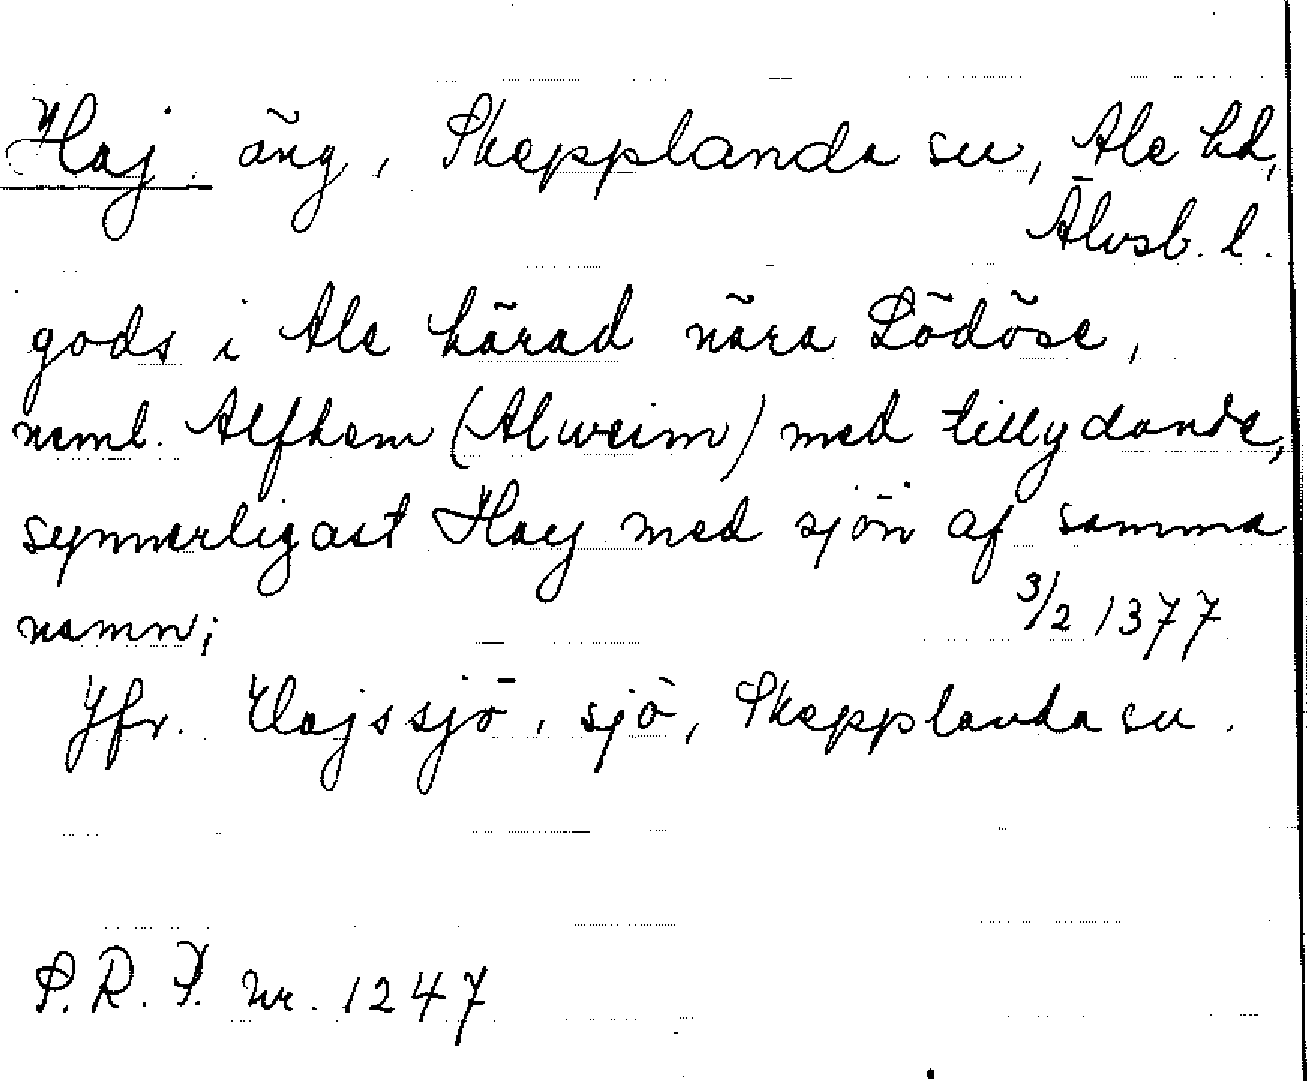 Haj äng, Skepplanda sn, Ale hd,
Älvsb. l.
gods i Ale härad nära Lödöse,
neml. Alfhem (Alweim) med tillydande,
synnerligast Hay med sjön af samma
namn; 3/2 1377
Jfr. Hajssjö, sjö, Skepplanda sn.
S.R.P. nr. 1247